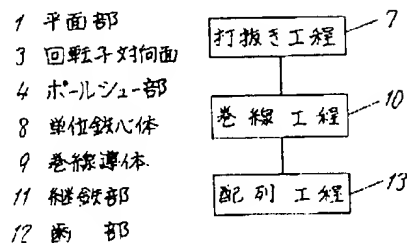 1 平面部
3 回転子対向面
4 ポールシュー部
8 単位鉄心体
9 巻線導体
11 継鉄部
12 歯 部
打抜き工程 7
巻線工程 10
配列工程 13